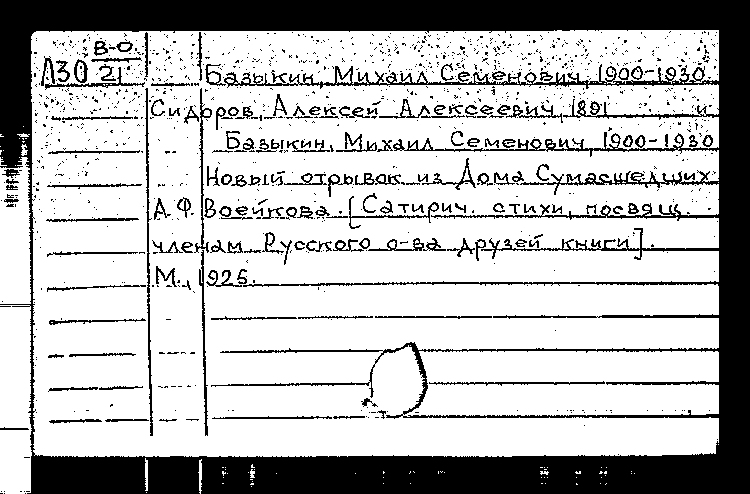 В-О
Л30 21 Базыкин, Михаил Семенович, 1900-1930
Сидоров, Алексей Алексеевич, 1891 и
Базыкин, Михаил Семенович, 1900-1930
Новый отрывок из Дома Сумасшедших
А.Ф. Воейкова. [Сатирич. стихи, посвящ.
членам Русского о-ва друзей книги].
М., 1925.